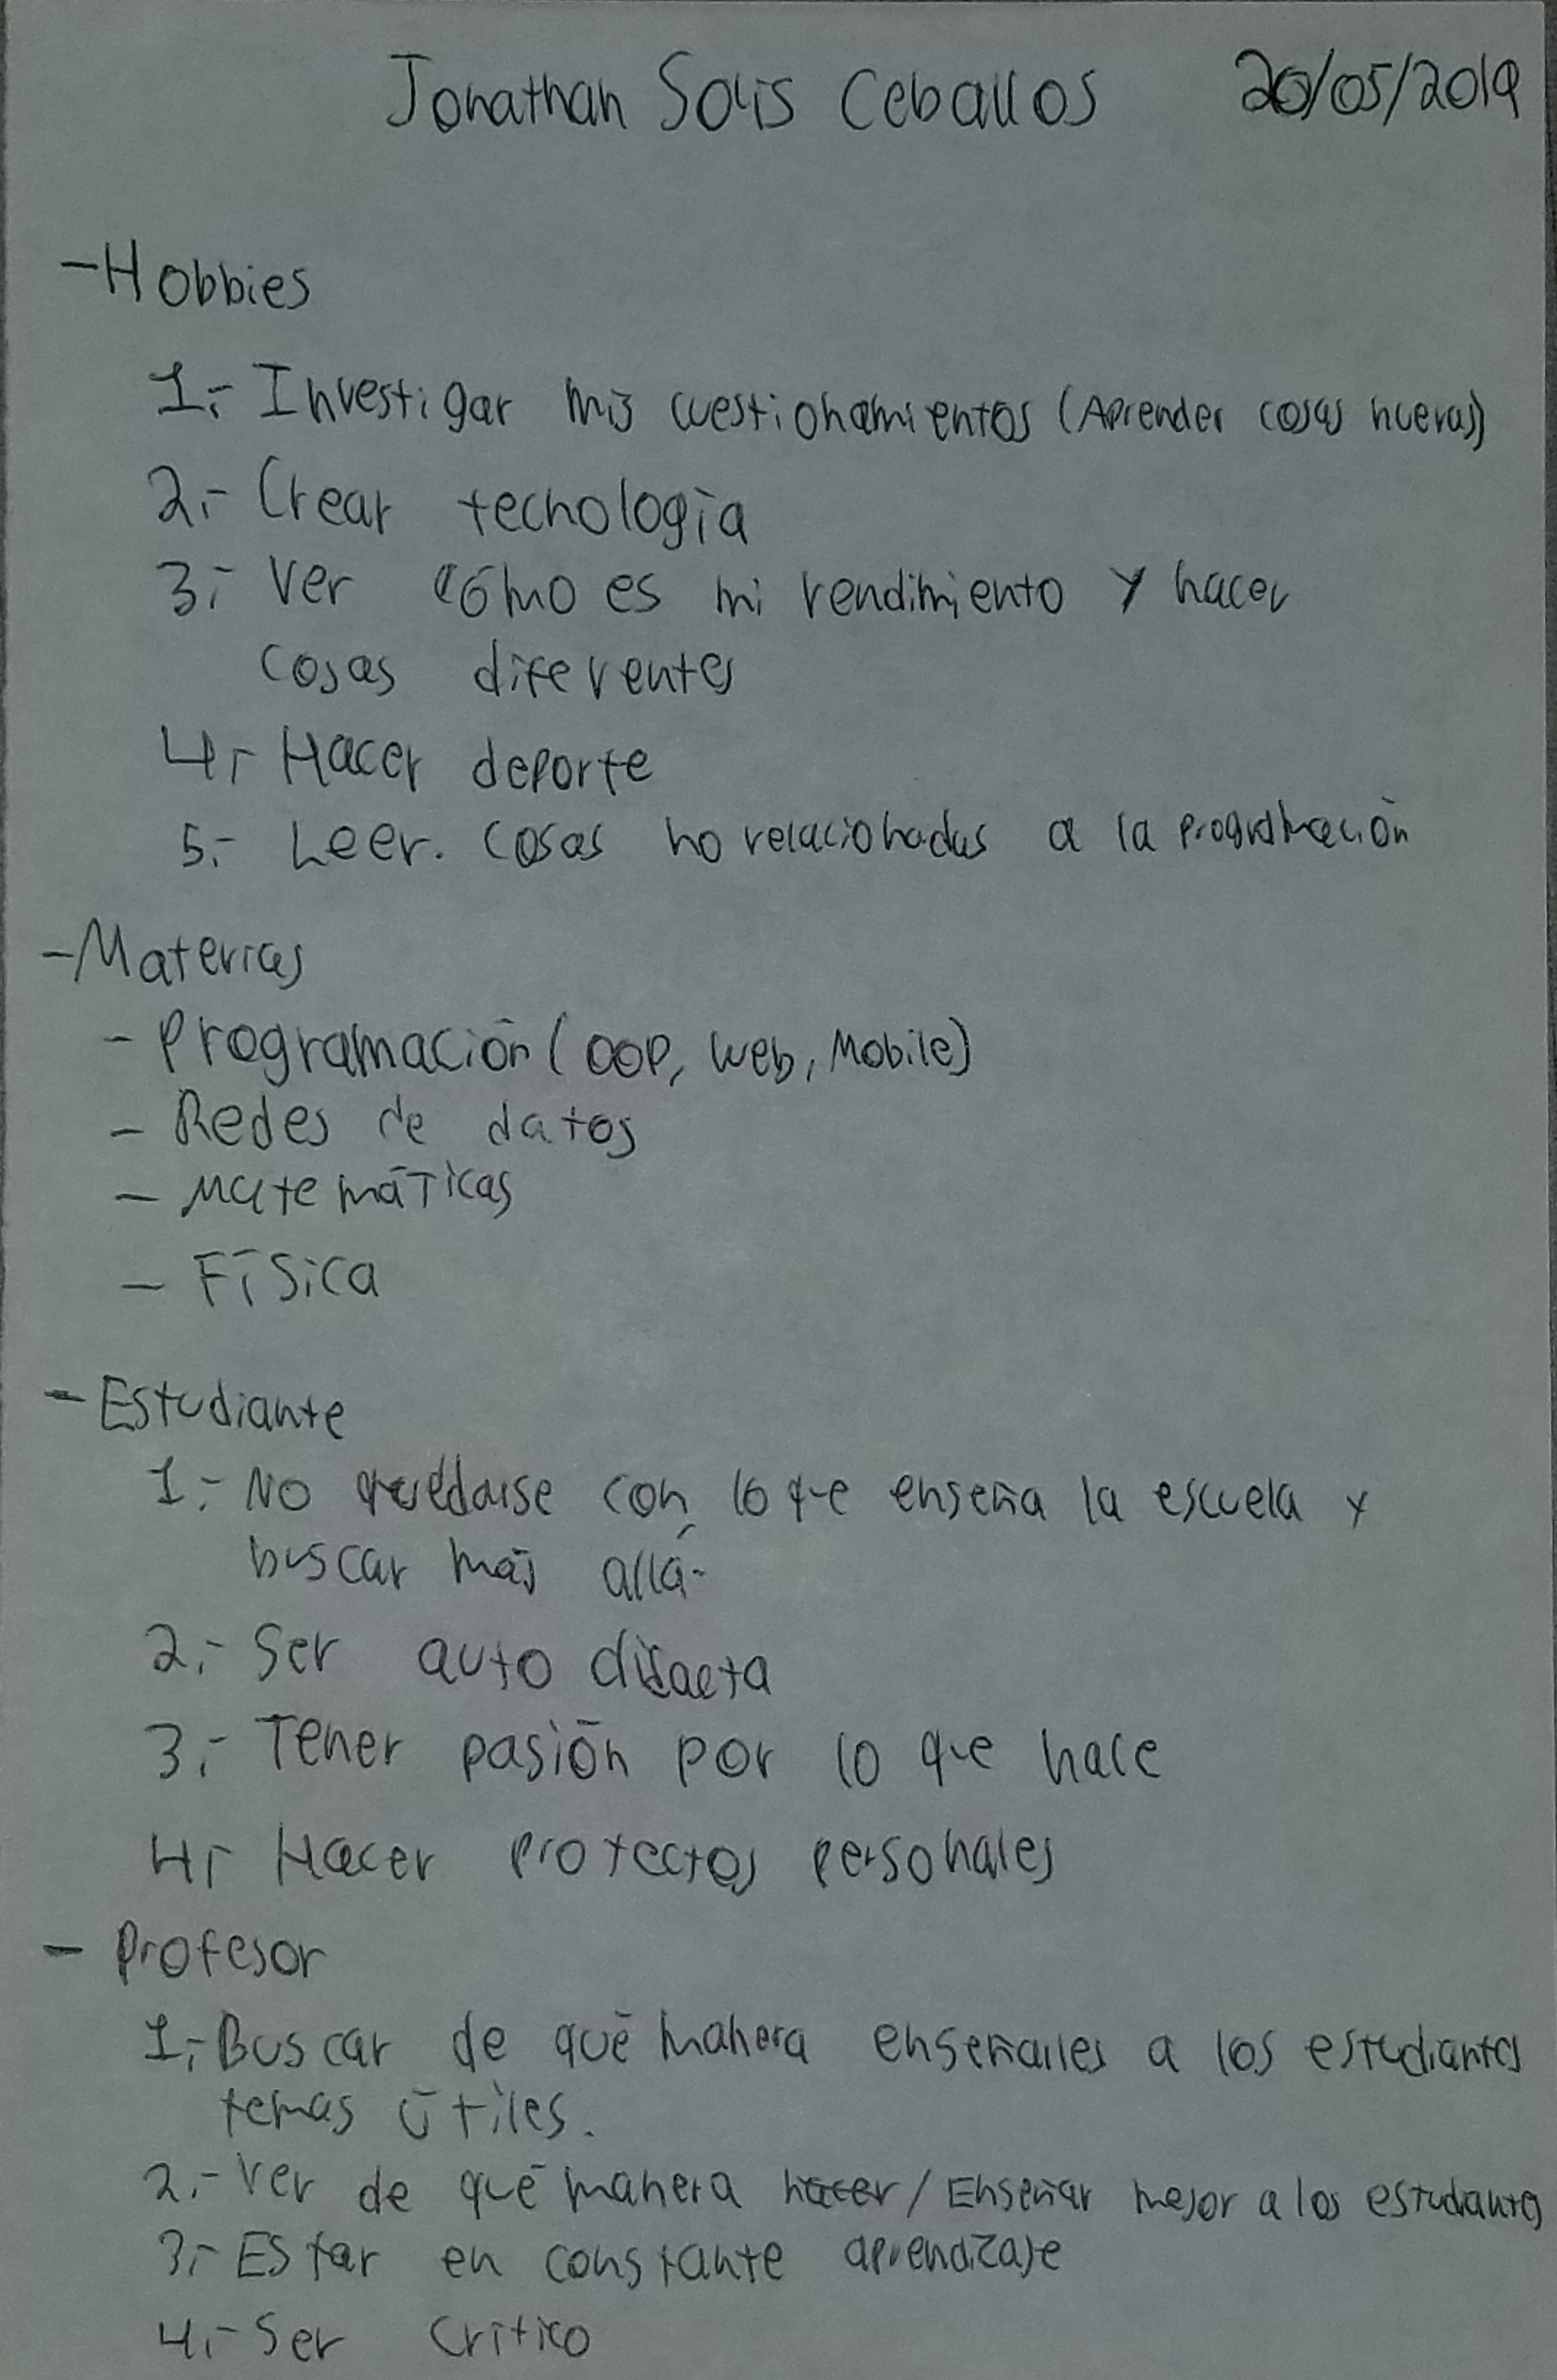 Jonathan Solis Ceballos 20/05/2019
- Hobbies
1.- Investigar mis cuestionamientos (Aprender cosas nuevas)
2.- Crear tecnología
3.- Ver cómo es mi rendimiento y hacer
cosas diferentes
4.- Hacer deporte
5.- Leer. cosas no relacionadas a la programación
- Materias
- Programación (OOP, Web, Mobile)
- Redes de datos
- Matemáticas
- Física
- Estudiante
1.- No quedarse con lo que enseña la escuela y
buscar más allá.
2.- Ser auto didacta
3.- Tener pasión por lo que hace
4.- Hacer proyectos personales
- Profesor
1.- Buscar de qué manera enseñarles a los estudiantes
temas útiles.
2.- Ver de qué manera hacer / Enseñar mejor a los estudiantes
3.- Estar en constante aprendizaje
4.- Ser crítico